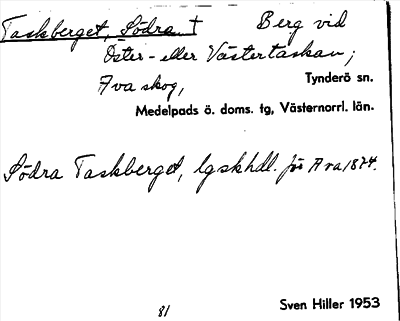 Taskberget, Södra † Berg vid
Öster- eller Västertaskan;
Åva skog, Tynderö sn.
Medelpads ö. doms. tg, Västernorrl. län.
Södra Taskberget, lgskhdl. för Åva 1874.
81 Sven Hiller 1953